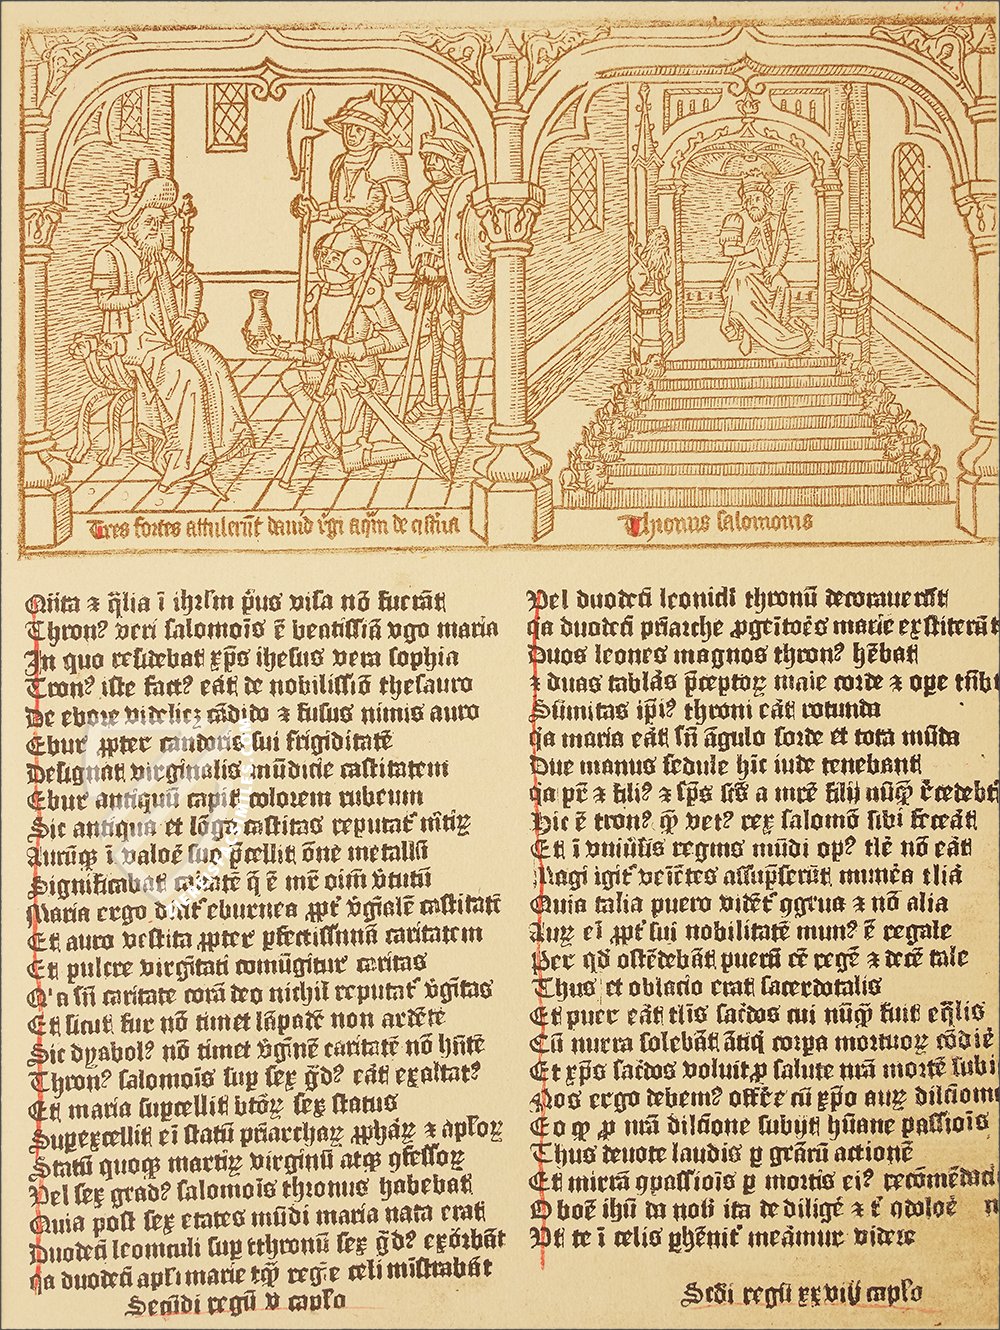 Tres fortes attulerũt dauid r̃gi aq̃m de cist̃na
Thronus salomonis
Q̃ita ⁊ q̃lia ĩ ihrlm p̃us visa nõ fuerãt
Thronꝰ veri salomoĩs ẽ beatissiã v̾go maria
In quo residebat xp̃s ihesus vera sophia
Tronꝰ iste factꝰ eãt de nobilissĩo thesauro
De ebore videlicz cãdido ⁊ fuluo nimis auro
Ebur ꝓpter candoris sui frigiditatẽ
Designat virginalis mũdicie castitatem
Ebur antiquũ capit colorem rubeum
Sic antiqua et lõga castitas reputat̾ m̃tiꝝ
Aurũqꝫ ĩ valoẽ suo p̃cellit õne metallũ
Significabat caritatẽ q̃ ẽ mr̃ oim̃ v̾tutũ
Maria ergo dr̃ eburnea ꝓpt̾ v̾gĩalẽ castitatẽ
Et auro vestita ꝓpter ꝑfectissimã caritatem
Et pulcre virg̃itati coniũgitur caritas
Q'a sñ caritate corã deo nichil reputat̾ v̾gĩtas
Et sicut fur nõ timet lãpadẽ non ardẽtẽ
Sic dyabolꝰ nõ timet v̾gĩnẽ caritatẽ nõ hñtẽ
Thronꝰ salomoĩs sup sex g̃dꝰ eãt exaltatꝰ
Et maria supcellit btõꝝ sex status
Supexcellit eĩ statũ pr̃iarchaꝝ ꝓphãꝝ ⁊ apl̃oꝝ
Statũ quoqꝫ martiꝝ virginũ atqꝫ ꝯfessoꝝ
Vel sex gradꝰ salomoĩs thronus habebat
Quia post sex etates mũdi maria nata erat
Duodeci leonculi sup tthronũ sex g̃dꝰ exõrbãt
q̃a duodecĩ apl̃i marie tq̃ reg̃e celi mĩstrabãt
Secũdi regũ v capl̃o
Vel duodecĩ leonicli thronũ decorauerũt
q̃a duodecĩ pr̃iarche ꝓgeĩtoẽs marie exstiterũt
Duos leones magnos thronꝰ hẽbat
⁊ duas tablãs p̃ceptoꝝ maie corde ⁊ oꝑe
Sũmitas ip̃iꝰ throni eãt rotunda
q̃a maria eãt sñ ãgulo sorde et tota mũda
Due manus sedule hĩc inde tenebant
q̃a pr̃ ⁊ filiꝰ ⁊ sp̃s sc̃s a mr̃e filij nũqꝫ
Hic ẽ tronꝰ qꝫ vetꝰ rex salomõ sibi feceãt
Et ĩ vniũsis regnis mũdi opꝰ tlẽ nõ eãt
Magi igit̾ veiẽtes assũpserũt muneã tliã
Quia talia puero vider̃t ꝯgrua ⁊ nõ alia
Auꝝ eĩ ꝓpt̾ sui nobilitatẽ munꝰ ẽ regale
Per qd̃ ostẽdebãt puerũ eẽ regẽ ⁊ decẽ tale
Thus et oblacio erat sacerdotalis
Et puer eãt tl̃is sac̾dos cui nũqꝫ fuit eq̃lis
Cũ mirra solebãt ãtiq̃ corpa mortuoꝝ cõdiẽ
Et xp̃s sac̾dos voluit ꝓ salute nr̃a mortẽ subi
Nos ergo debemꝰ offeře cũ xp̃o auꝝ dilc̃ioni
Eo qꝫ ꝓ nr̃a dilc̃ione subijt hũane passiois
Thus deuote laudis ꝑ gr̃arũ actionẽ
Et mirrã ꝯpassiõis ꝑ mortis eiꝰ
O boẽ ihũ da nobi ita te diligẽ ⁊ t̾
Vt te ĩ celis ꝑhẽnit̾ meãmur videre
Scdi regũ xxviij capl̃o